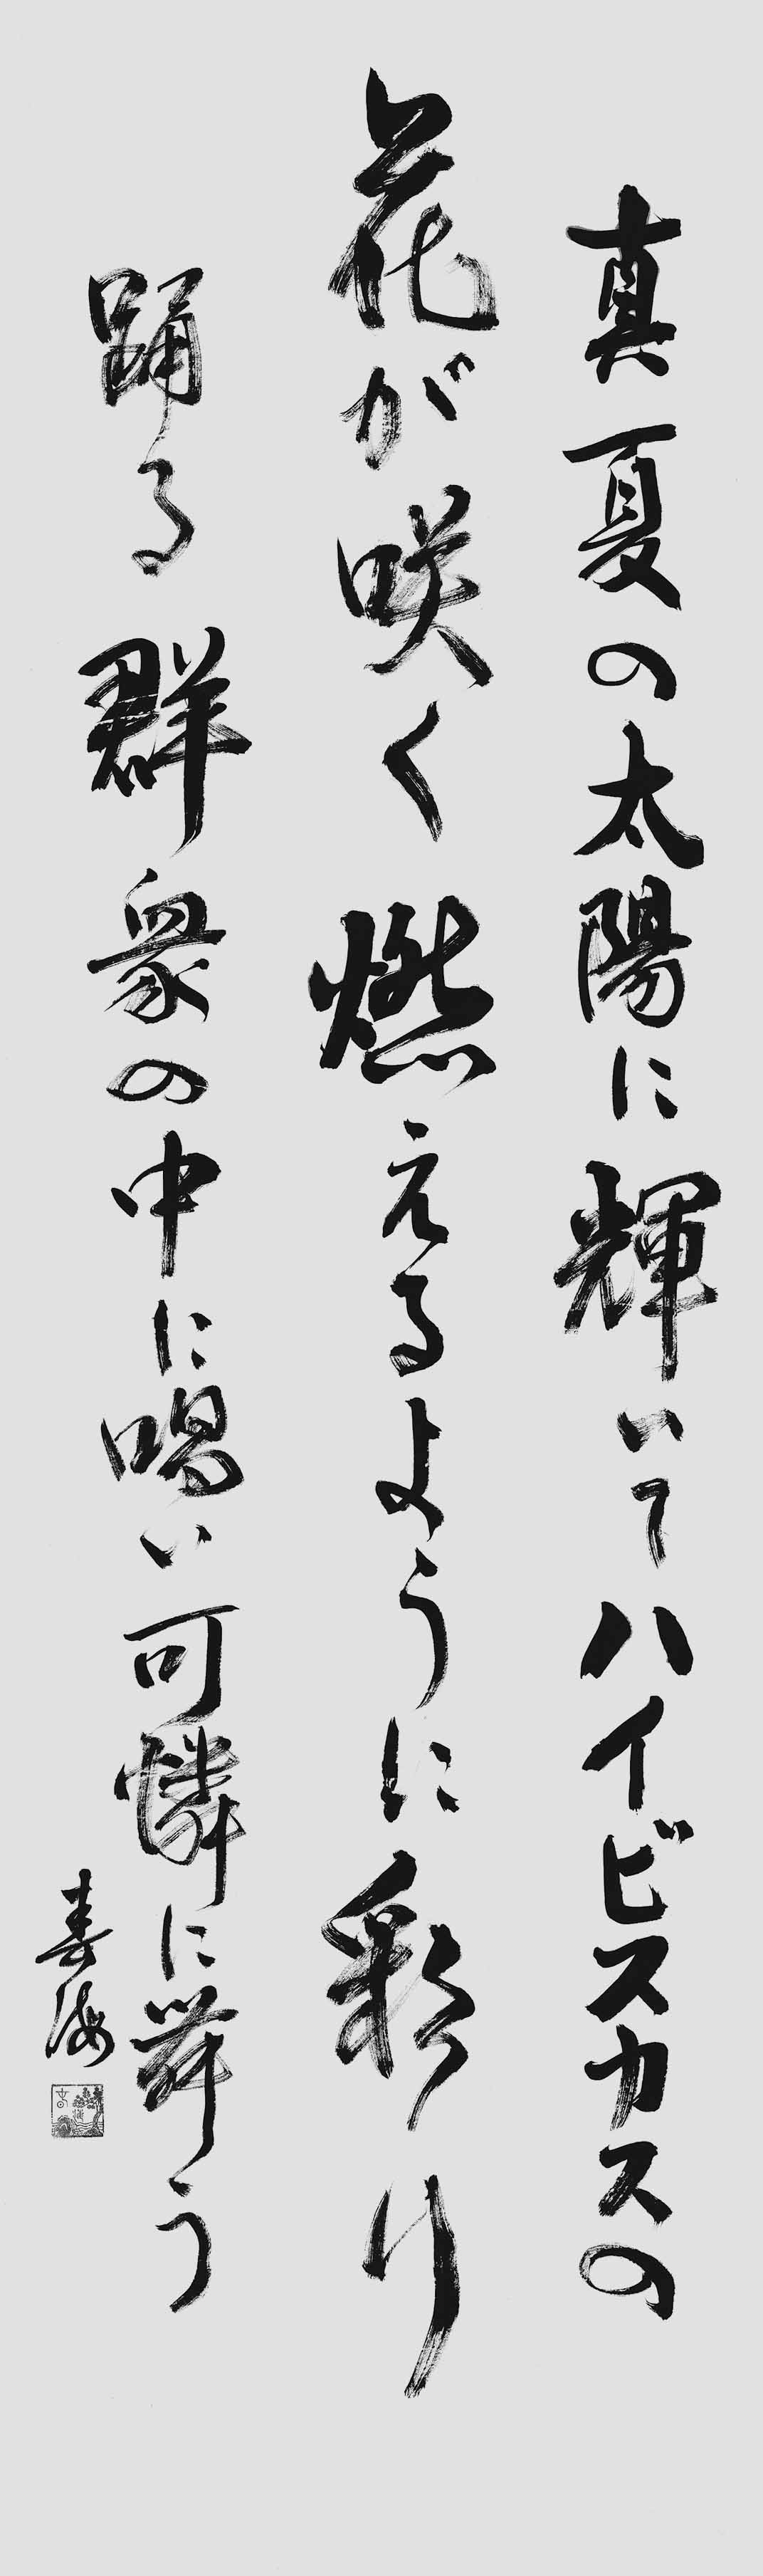 真夏の太陽に輝いてハイビスカスの
花が咲く燃えるように彩り
踊る群衆の中に唱い可憐に舞う
春海